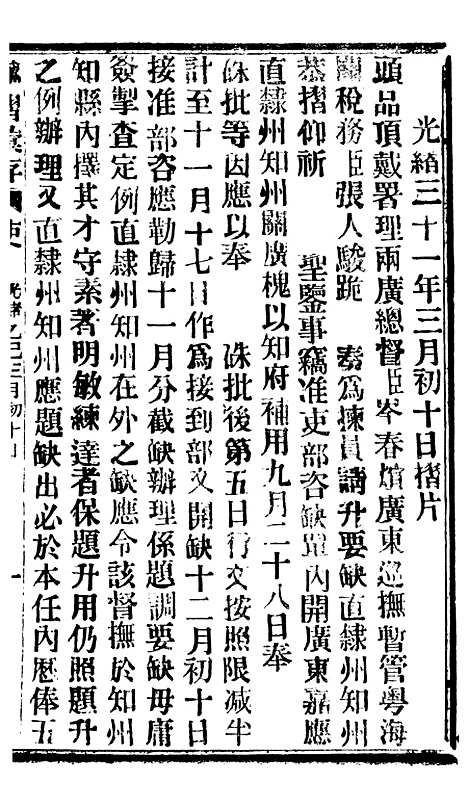 光緒三十一年三月初十日摺片
頭品頂戴署理兩廣總督臣岑春煊廣東巡撫暫管粵海
關稅務臣張人駿跪　奏爲揀員請升要缺直隸州知州
恭摺仰祈　聖鑒事竊准吏部咨缺單內開廣東嘉應
直隸州知州關廣槐以知府補用九月二十八日奉
硃批等因應以奉　硃批後第五日行文按照限减半
計至十一月十七日作爲接到部文開缺十二月初十日
接准部咨應勒歸十一月分截缺辦理係題調要缺毋庸
簽掣查定例直隸州知州在外之缺應令該督撫於知州
知縣內擇其才守素著明敏練達者保題升用仍照題升
之例辦理又直隸州知州應題缺出必於本任內歷俸五
光緒乙巳三月初十日　一